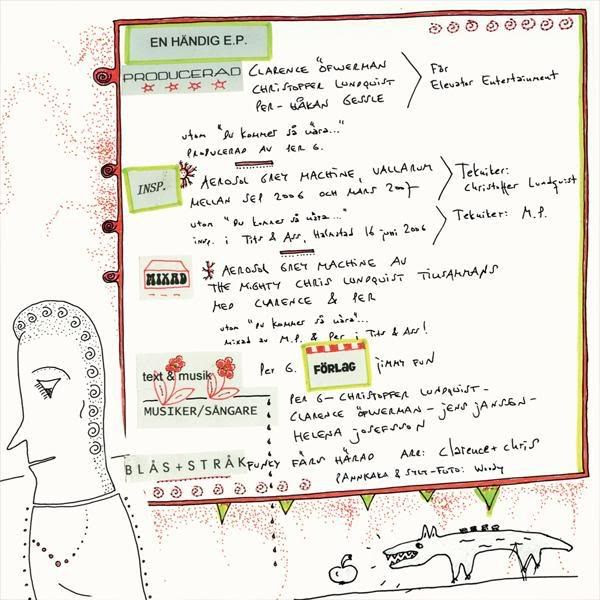 EN HÄNDIG E.P.
PRODUCERAD
CLARENCE ÖFWERMAN
CHRISTOFFER LUNDQUIST
PER-HÅKAN GESSLE
För
Elevator Entertainment
utom "Du kommer så nära..."
PRODUCERAD AV PER G.
INSP.
AEROSOL GREY MACHINE, VALLARUM
MELLAN SEP 2006 OCH MARS 2007
Tekniker:
Christoffer Lundquist
utom "Du kommer så nära..."
insp. i Tits & Ass, Halmstad 16 juni 2006
Tekniker: M.P.
MIXAD
AEROSOL GREY MACHINE AV
THE MIGHTY CHRIS LUNDQUIST TILLSAMMANS
MED CLARENCE & PER
utom "Du kommer så nära"...
mixad av M.P. & Per i Tits & Ass!
text & musik
PER G.
FÖRLAG
JIMMY FUN
MUSIKER/SÅNGARE
PER G – CHRISTOFFER LUNDQUIST –
CLARENCE ÖFWERMAN – JENS JANSSON –
HELENA JOSEFSSON
BLÅS+STRÅK
FUNKY FÄRS HÄRAD ARR: Clarence + Chris
PANNKAKA & SYLT-FOTO: Woody